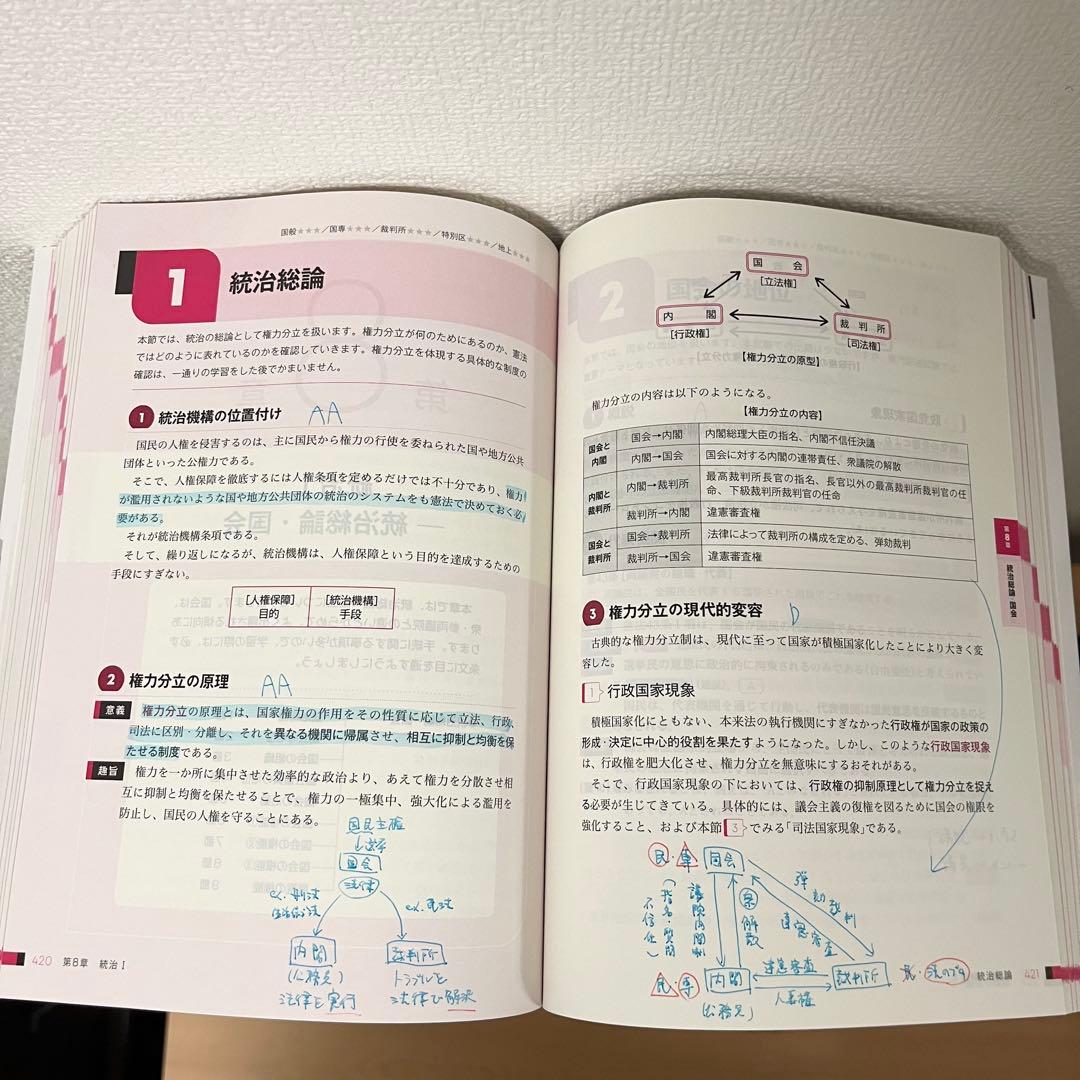 国般★★★／国専★★★／裁判所★★★／特別区★★★／地上★★★
1
統治総論
本節では、統治の総論として権力分立を扱います。権力分立が何のためにあるのか、憲法
ではどのように表れているのかを確認していきます。権力分立を体現する具体的な制度の
確認は、一通りの学習をした後でかまいません。
1 統治機構の位置付け AA
国民の人権を侵害するのは、主に国民から権力の行使を委ねられた国や地方公共
団体といった公権力である。
そこで、人権保障を徹底するには人権条項を定めるだけでは不十分であり、権力
が濫用されないような国や地方公共団体の統治のシステムをも憲法で決めておく必
要がある。
それが統治機構条項である。
そして、繰り返しになるが、統治機構は、人権保障という目的を達成するための
手段にすぎない。
[人権保障] [統治機構]
目的 手段
2 権力分立の原理 AA
意義 権力分立の原理とは、国家権力の作用をその性質に応じて立法、行政、
司法に区別・分離し、それを異なる機関に帰属させ、相互に抑制と均衡を保
たせる制度である。
趣旨 権力を一か所に集中させた効率的な政治より、あえて権力を分散させ相
互に抑制と均衡を保たせることで、権力の一極集中、強大化による濫用を
防止し、国民の人権を守ることにある。
国民主権
↓選挙
国会
法律
ex.刑法
ex.民法
内閣
(公務員)
法律を実行
裁判所
トラブルを
法律で解決
420 第8章 統治Ⅰ
国会
[立法権]
内閣
[行政権]
裁判所
[司法権]
【権力分立の原型】
権力分立の内容は以下のようになる。
【権力分立の内容】
国会と内閣 国会→内閣 内閣総理大臣の指名、内閣不信任決議
内閣→国会 国会に対する内閣の連帯責任、衆議院の解散
内閣と裁判所 内閣→裁判所 最高裁判所長官の指名、長官以外の最高裁判所裁判官の任
命、下級裁判所裁判官の任命
裁判所→内閣 違憲審査権
国会と裁判所 国会→裁判所 法律によって裁判所の構成を定める、弾劾裁判
裁判所→国会 違憲審査権
3 権力分立の現代的変容 D
古典的な権力分立制は、現代に至って国家が積極国家化したことにより大きく変
容した。
1 行政国家現象
積極国家化にともない、本来法の執行機関にすぎなかった行政権が国家の政策の
形成・決定に中心的役割を果たすようになった。しかし、このような行政国家現象
は、行政権を肥大化させ、権力分立を無意味にするおそれがある。
そこで、行政国家現象の下においては、行政権の抑制原理として権力分立を捉え
る必要が生じてきている。具体的には、議会主義の復権を図るために国会の権限を
強化すること、および本節 3 でみる「司法国家現象」である。
民・専 国会
議院内閣制
(指名・質問
不信任)
衆
解散
弾劾裁判
違憲審査
民・専 内閣
(公務員)
違憲審査
人事権
裁判所
民・法のプロ
第8章
統治総論 国会
統治総論 421